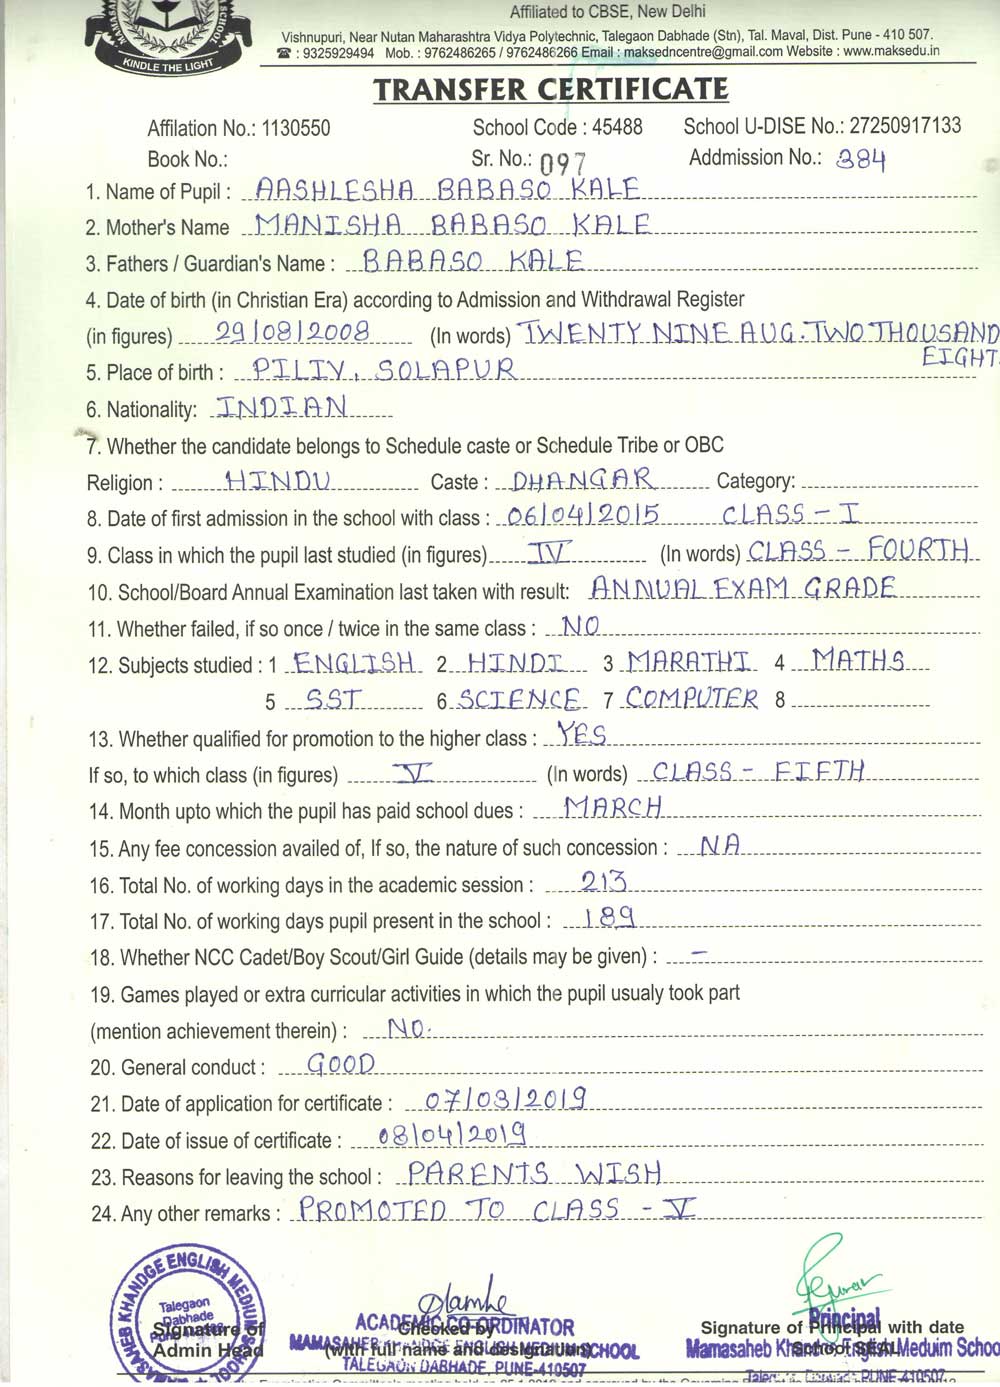 KINDLE THE LIGHT
Affiliated to CBSE, New Delhi
Vishnupuri, Near Nutan Maharashtra Vidya Polytechnic, Talegaon Dabhade (Stn), Tal. Maval, Dist. Pune - 410 507.
☎ : 9325929494 Mob. : 9762486265 / 9762486266 Email : maksedncentre@gmail.com Website : www.maksedu.in
TRANSFER CERTIFICATE
Affilation No.: 1130550 School Code : 45488 School U-DISE No.: 27250917133
Book No.: Sr. No.: 097 Addmission No.: 384
1. Name of Pupil : AASHLESHA BABASO KALE
2. Mother's Name MANISHA BABASO KALE
3. Fathers / Guardian's Name : BABASO KALE
4. Date of birth (in Christian Era) according to Admission and Withdrawal Register
(in figures) 29/08/2008 (In words) TWENTY NINE AUG. TWO THOUSAND
EIGHT.
5. Place of birth : PILIV, SOLAPUR
6. Nationality: INDIAN
7. Whether the candidate belongs to Schedule caste or Schedule Tribe or OBC
Religion : HINDU Caste : DHANGAR Category:
8. Date of first admission in the school with class : 06/04/2015 CLASS - I
9. Class in which the pupil last studied (in figures) IV (In words) CLASS - FOURTH
10. School/Board Annual Examination last taken with result: ANNUAL EXAM GRADE
11. Whether failed, if so once / twice in the same class : NO
12. Subjects studied : 1 ENGLISH 2 HINDI 3 MARATHI 4 MATHS
5 SST 6 SCIENCE 7 COMPUTER 8
13. Whether qualified for promotion to the higher class : YES
If so, to which class (in figures) V (In words) CLASS - FIFTH
14. Month upto which the pupil has paid school dues : MARCH
15. Any fee concession availed of, If so, the nature of such concession : NA
16. Total No. of working days in the academic session : 213
17. Total No. of working days pupil present in the school : 189
18. Whether NCC Cadet/Boy Scout/Girl Guide (details may be given) : -
19. Games played or extra curricular activities in which the pupil usualy took part
(mention achievement therein) : NO.
20. General conduct : GOOD
21. Date of application for certificate : 07/03/2019
22. Date of issue of certificate : 08/04/2019
23. Reasons for leaving the school : PARENTS WISH
24. Any other remarks : PROMOTED TO CLASS - V
KHANDGE ENGLISH MEDIUM
Talegaon
Dabhade
Signature of
Admin Head
ACADEMIC CO-ORDINATOR
Checked by
(with full name and designation) SCHOOL
TALEGAON DABHADE, PUNE-410507
Principal
Signature of Principal with date
Mamasaheb Khandge English Meduim Schoo
School SEAL